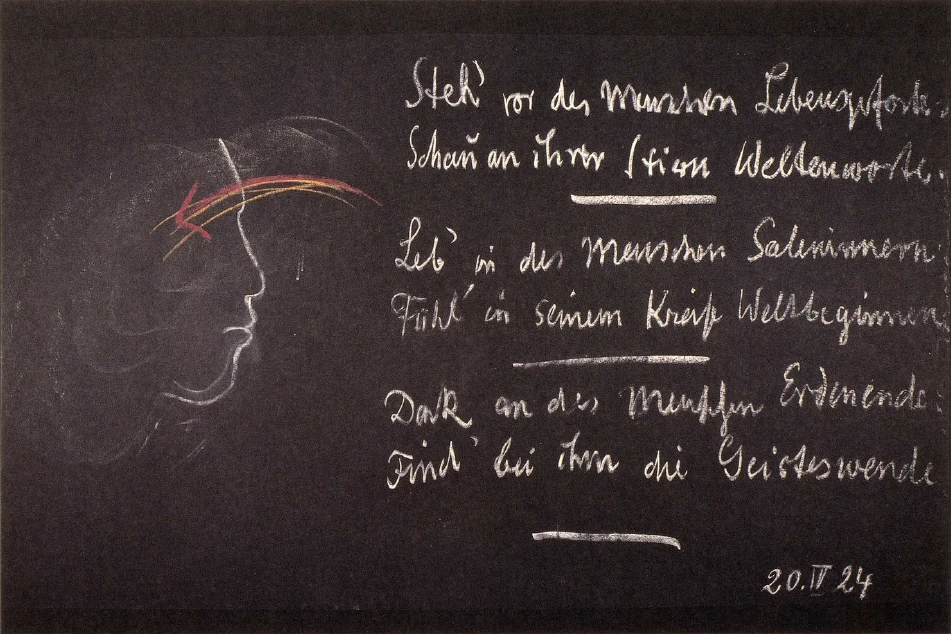 Steh' vor des Menschen Lebenspforte:
Schau an ihrer Stirn Weltenworte.
Leb' in des Menschen Seeleninnern
Fühl' in seinem Kreise Weltbeginnen
Denk' an des Menschen Erdenende:
Find' bei ihm die Geisteswende
20.IV 24